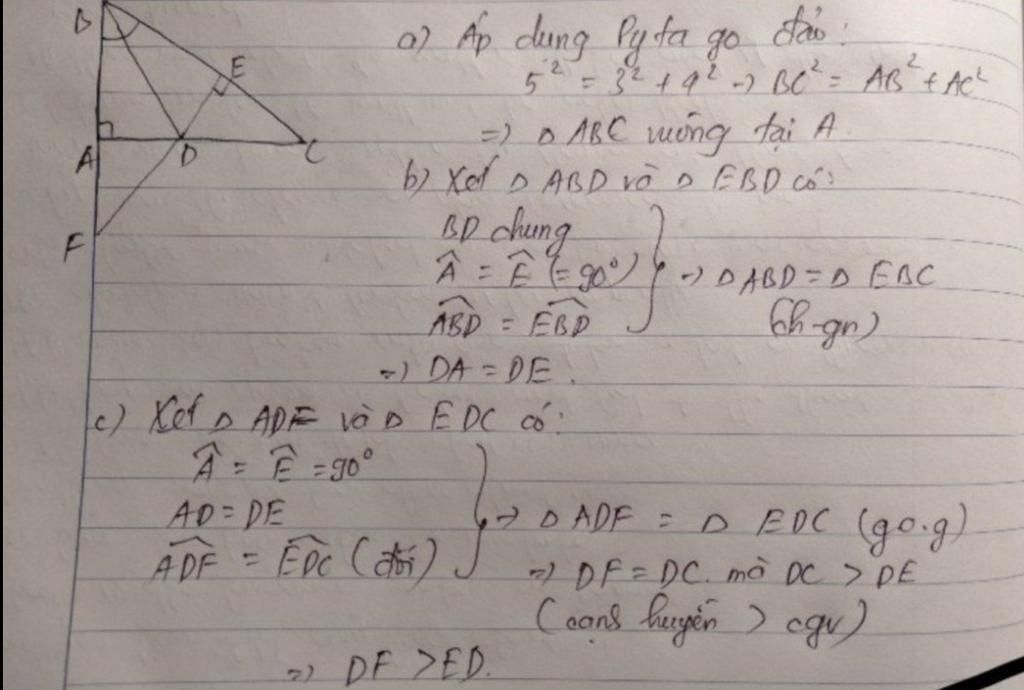 B
E
A
D
C
F
a) Áp dụng Pytago đảo:
5² = 3² + 4² → BC² = AB² + AC²
=> Δ ABC vuông tại A.
b) Xét Δ ABD và Δ EBD có:
BD chung
Â = Ê (= 90°)
ABD̂ = EBD̂
→ Δ ABD = Δ EBC
(ch-gn)
=> DA = DE.
c) Xét Δ ADF và Δ EDC có:
Â = Ê = 90°
AD = DE
ADF̂ = EDĈ (đối)
→ Δ ADF = Δ EDC (g.c.g)
=> DF = DC. mà DC > DE
(cạnh huyền > cgv)
=> DF > ED.